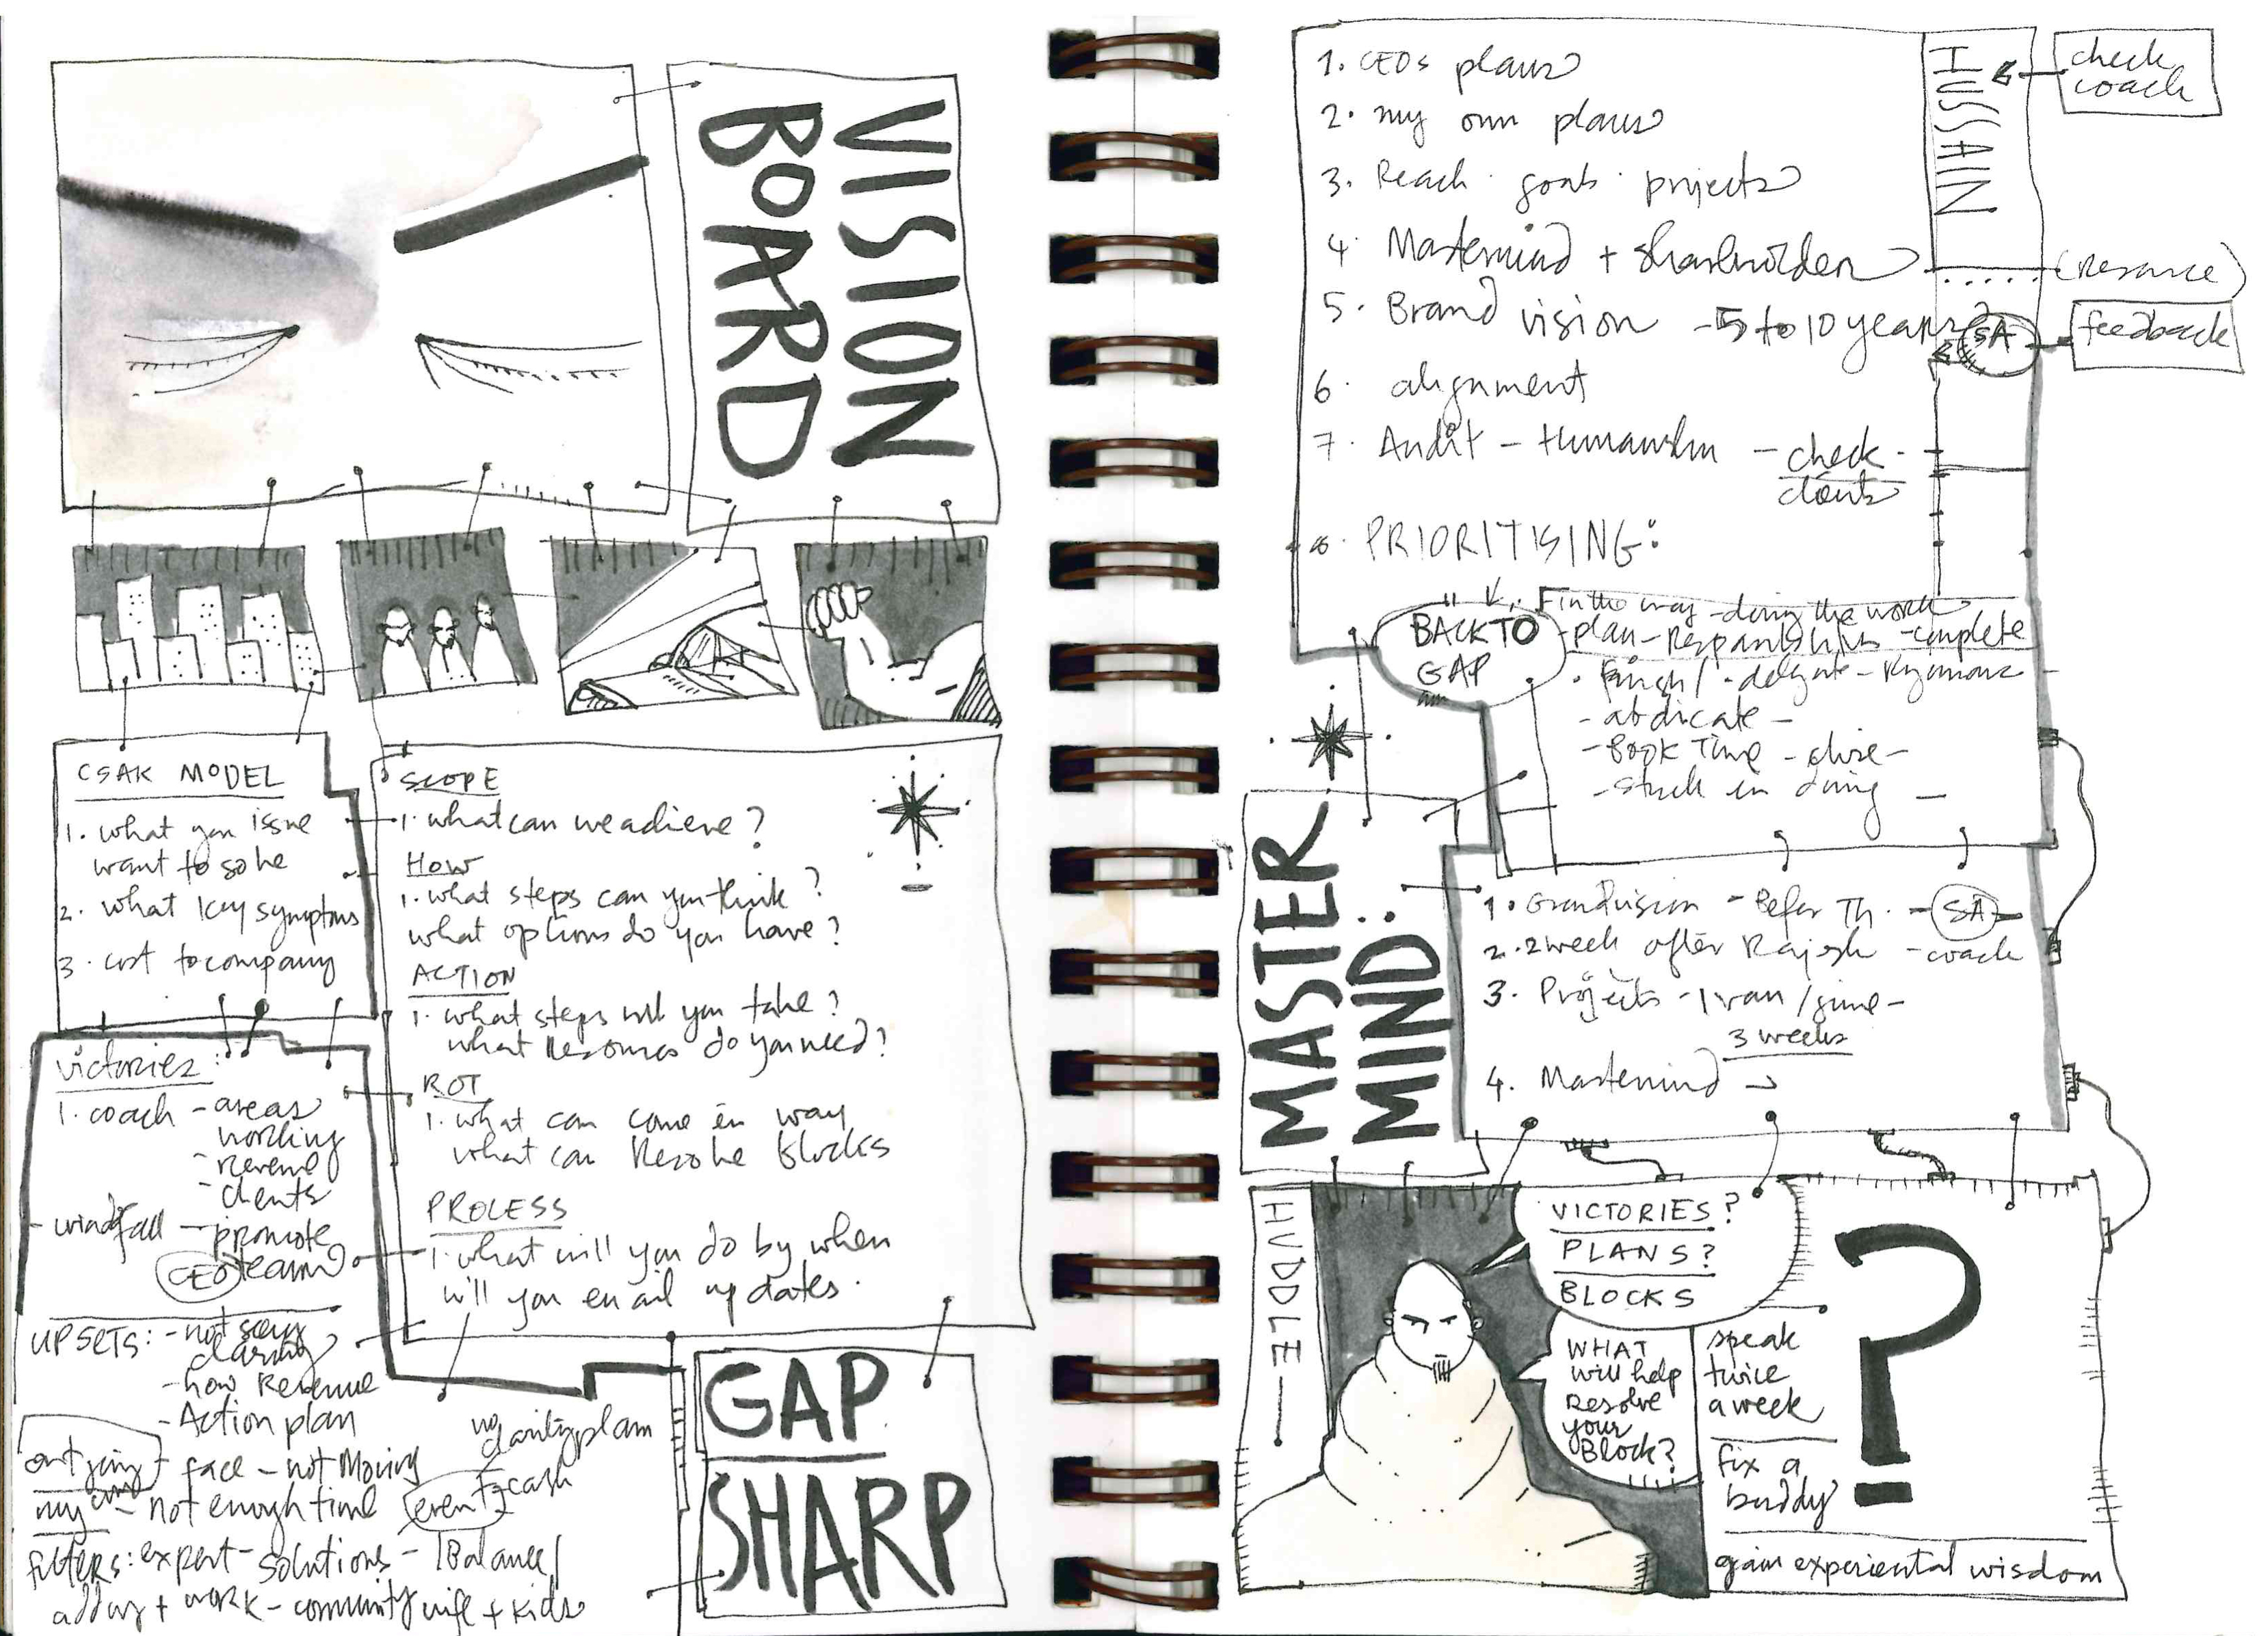 VISION
BOARD
CSAK MODEL
1. what you issue
want to solve
2. what key symptoms
3. cost to company
SCOPE
1. what can we achieve?
HOW
1. what steps can you think?
what options do you have?
ACTION
1. what steps will you take?
what resources do you need?
ROT
1. what can come in way
what can resolve blocks
PROCESS
1. what will you do by when
will you email updates.
victories:
1. coach - areas
working
- revenue
- clients
- windfall - promote
CEO team
UPSETS: - not
- how Revenue
- Action plan
no
clarity plan
face - not moving
my - not enough time
even cash
filters: expert - solutions - Balance/
+ work - community wife + kids
GAP
SHARP
1. CEOs plans
2. my own plans
3. Reach goals projects
4. Mastermind + shareholder
5. Brand vision - 5 to 10 years
6. alignment
7. Audit - - check
clients
8. PRIORITISING:
HUSSAIN
check
coach
SA
feedback
BACK TO
GAP
in the way - doing the work
- plan - responsibilities - complete
- abdicate -
- Book Time -
- stuck in doing -
MASTER
MIND:
1. Grandvision - Before Th. - SA
2. 2 week after Rajesh - coach
3. Projects -
3 weeks
4. Mastermind
HUDDLE
VICTORIES?
PLANS?
BLOCKS
WHAT
will help
resolve
your
Block?
speak
twice
a week
fix a
buddy
?
gain experiential wisdom